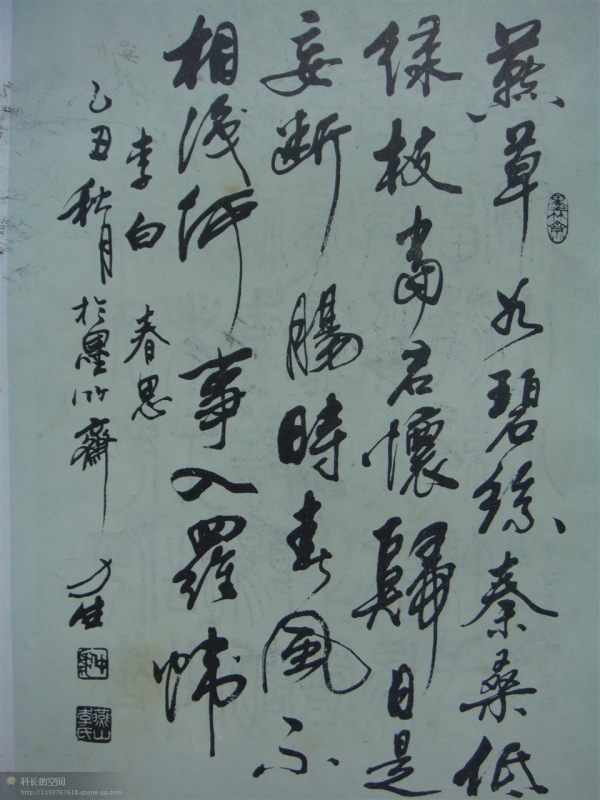 燕草如碧絲秦桑低
绿枝當君懷歸日是
妾断腸時春風不
相識何事入羅幃
李白 春思
乙丑秋月於墨竹齋 力生
墨竹齋
燕山李氏
科长的空间
http://1193767618.qzone.qq.com